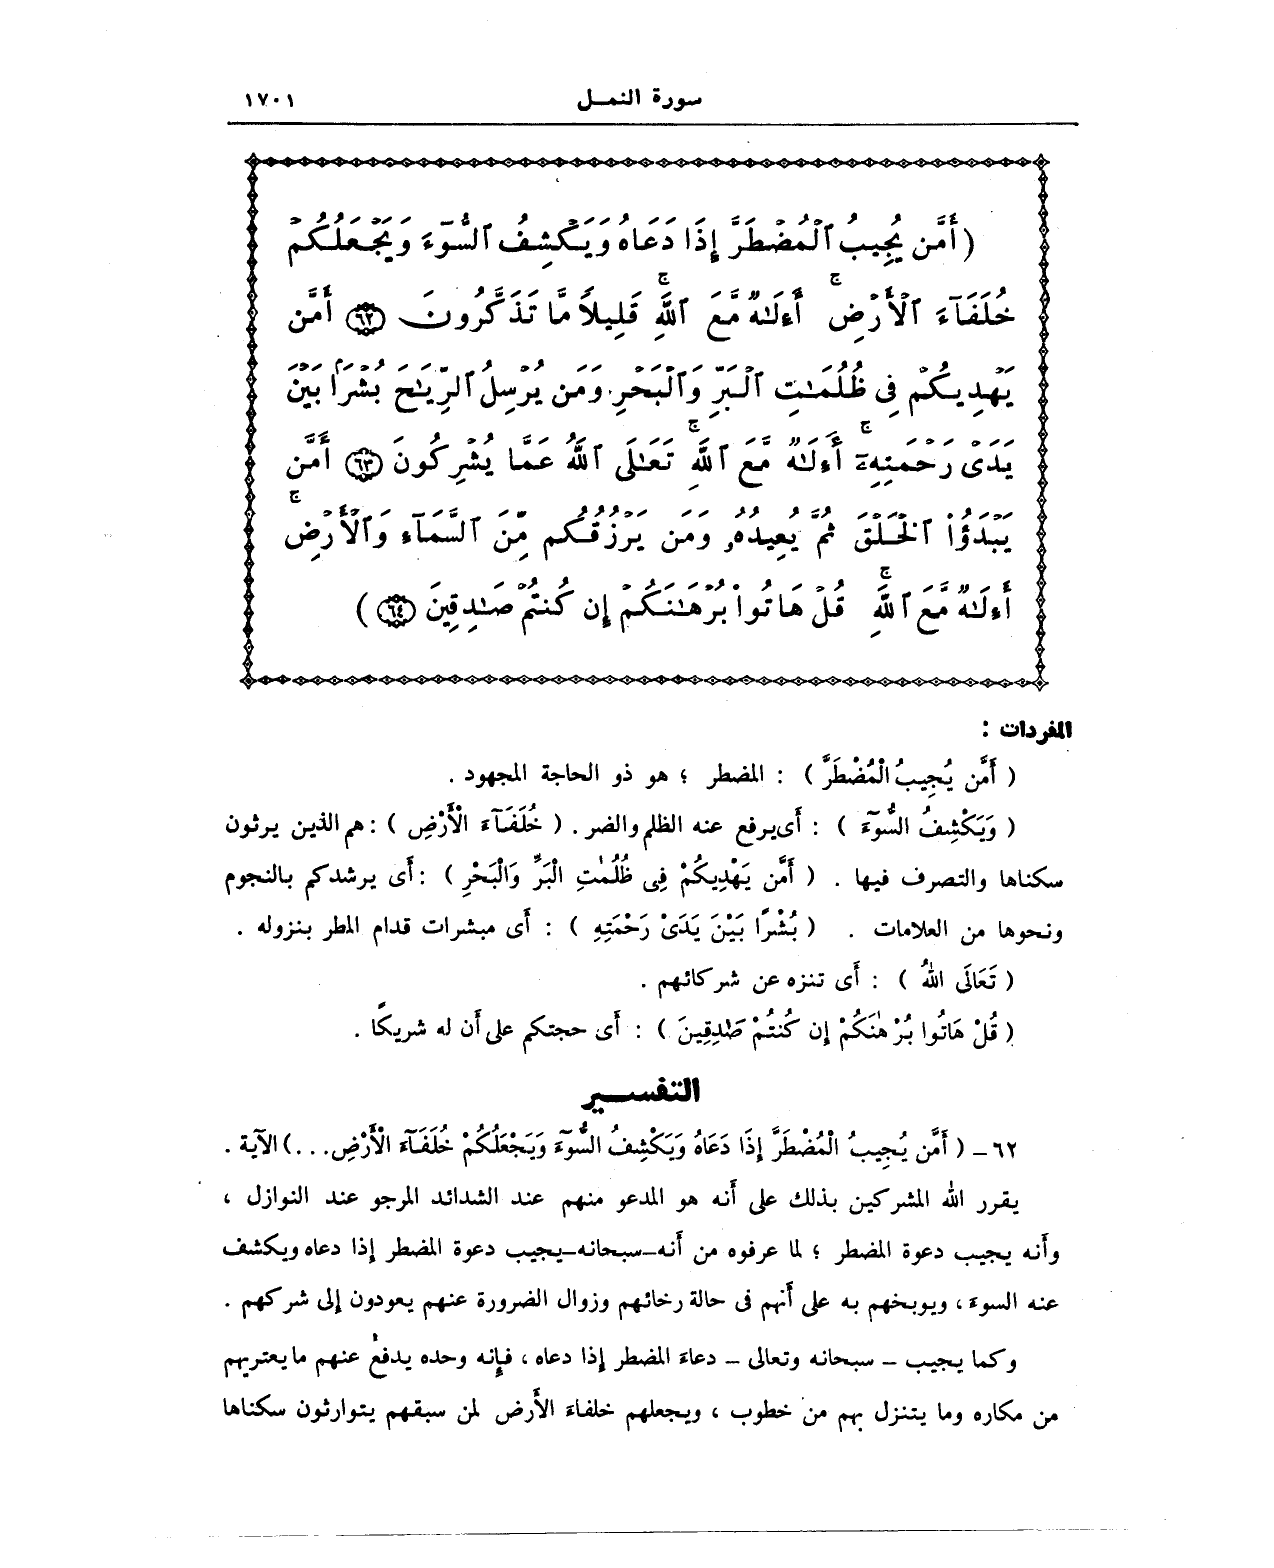 سورة النمل ١٧٠١
(أَمَّن يُجِيبُ ٱلۡمُضۡطَرَّ إِذَا دَعَاهُ وَيَكۡشِفُ ٱلسُّوٓءَ وَيَجۡعَلُكُمۡ
خُلَفَآءَ ٱلۡأَرۡضِۗ أَءِلَٰهٞ مَّعَ ٱللَّهِۚ قَلِيلٗا مَّا تَذَكَّرُونَ ٦٢ أَمَّن
يَهۡدِيكُمۡ فِي ظُلُمَٰتِ ٱلۡبَرِّ وَٱلۡبَحۡرِ وَمَن يُرۡسِلُ ٱلرِّيَٰحَ بُشۡرَۢا بَيۡنَ
يَدَيۡ رَحۡمَتِهِۦٓۗ أَءِلَٰهٞ مَّعَ ٱللَّهِۚ تَعَٰلَى ٱللَّهُ عَمَّا يُشۡرِكُونَ ٦٣ أَمَّن
يَبۡدَؤُاْ ٱلۡخَلۡقَ ثُمَّ يُعِيدُهُۥ وَمَن يَرۡزُقُكُم مِّنَ ٱلسَّمَآءِ وَٱلۡأَرۡضِۗ
أَءِلَٰهٞ مَّعَ ٱللَّهِۚ قُلۡ هَاتُواْ بُرۡهَٰنَكُمۡ إِن كُنتُمۡ صَٰدِقِينَ ٦٤)
المفردات :
( أَمَّن يُجِيبُ الْمُضْطَرَّ ) : المضطر ؛ هو ذو الحاجة المجهود .
( وَيَكْشِفُ السُّوٓءَ ) : أى يرفع عنه الظلم والضر . ( خُلَفَآءَ الْأَرْضِ ) : هم الذين يرثون
سكناها والتصرف فيها . ( أَمَّن يَهْدِيكُمْ فِى ظُلُمَٰتِ الْبَرِّ وَالْبَحْرِ ) : أى يرشدكم بالنجوم
ونحوها من العلامات . ( بُشْرًا بَيْنَ يَدَىْ رَحْمَتِهِ ) : أى مبشرات قدام المطر بنزوله .
( تَعَالَى اللهُ ) : أى تنزه عن شركائهم .
( قُلْ هَاتُوا بُرْهَٰنَكُمْ إِن كُنتُمْ صَٰدِقِينَ ) : أى حجتكم على أن له شريكًا .
التفسير
٦٢ـ ( أَمَّن يُجِيبُ الْمُضْطَرَّ إِذَا دَعَاهُ وَيَكْشِفُ السُّوٓءَ وَيَجْعَلُكُمْ خُلَفَآءَ الْأَرْضِ...) الآية .
يقرر الله المشركين بذلك على أنه هو المدعو منهم عند الشدائد المرجو عند النوازل ،
وأنه يجيب دعوة المضطر ؛ لما عرفوه من أنه ـ سبحانه ـ يجيب دعوة المضطر إذا دعاه ويكشف
عنه السوء ، ويوبخهم به على أنهم فى حالة رخائهم وزوال الضرورة عنهم يعودون إلى شركهم .
وكما يجيب ـ سبحانه وتعالى ـ دعاء المضطر إذا دعاه ، فإنه وحده يدفع عنهم ما يعتريهم
من مكاره وما يتنزل بهم من خطوب ، ويجعلهم خلفاء الأرض لمن سبقهم يتوارثون سكناها